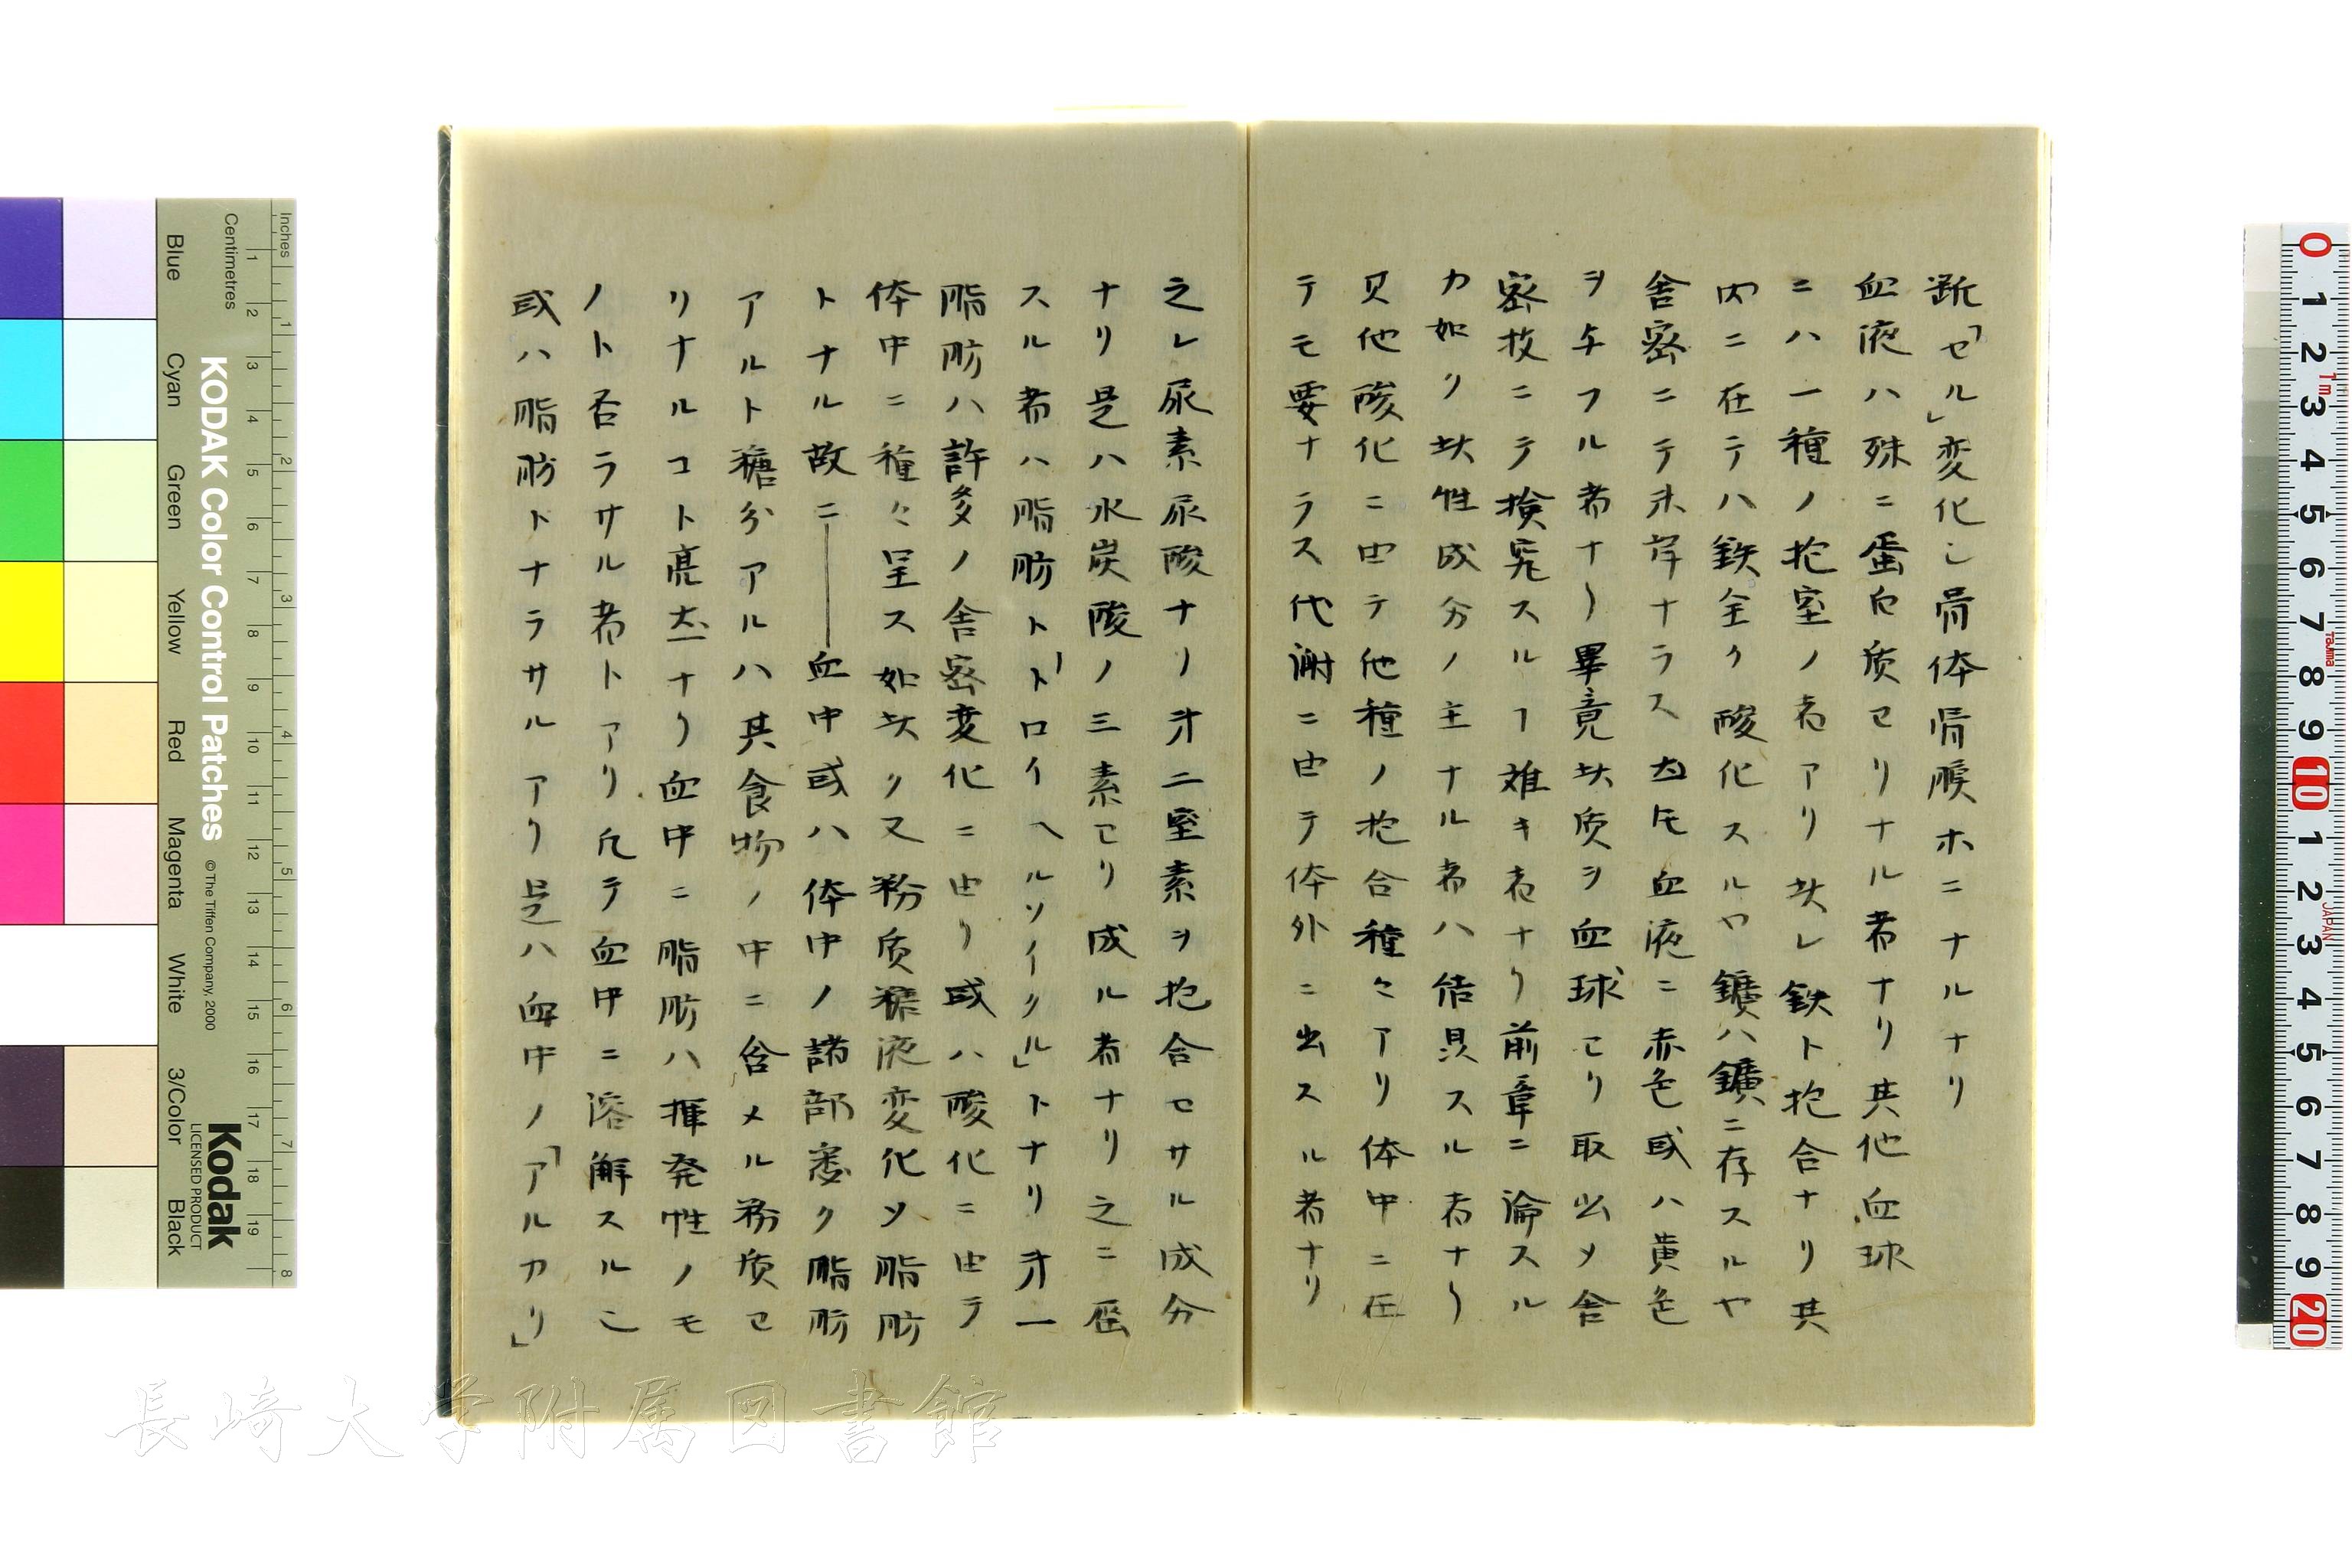 「セル」変化シ骨体骨膜ホニナルナリ
血液ハ殊ニ蛋白质ヨリナル者ナリ其他血球
ニハ一種ノ抱室ノ者アリ此レ鉄ト抱合ナリ其
内ニ在テハ鉄全ク酸化スルヤ鑛ハ鑛ニ存スルヤ
舎密ニテ未詳ナラス 血液ニ赤色或ハ黄色
ヲ与フル者ナリ畢竟此质ヲ血球ヨリ取出メ舎
密技ニテ検究スルヿ難キ者ナリ前章ニ論スル
カ如リ此性成分ノ主ナル者ハ結具スル者ナリ
又他酸化ニ由テ他種ノ抱合種々アリ体中ニ在
テモ要ナラス代謝ニ由テ体外ニ出スル者ナリ
之レ尿素尿酸ナリ㐧二窒素ヲ抱合セサル成分
ナリ是ハ水炭酸ノ三素ヨリ成ル者ナリ之ニ屬
スル者ハ脂肪ト「トロイヘルソイクル」トナリ㐧一
脂肪ハ許多ノ舎密変化ニ由リ或ハ酸化ニ由テ
体中ニ種々呈ス如此ク又粉质糖液変化メ脂肪
トナル故ニ――血中或ハ体中ノ諸部悉ク脂肪
アルト糖分アルハ其食物ノ中ニ含メル粉质ヨ
リナルコト亮 ナリ血中ニ脂肪ハ揮発性ノモ
ノト否ラサル者トアリ凡テ血中ニ溶解スルニ
或ハ脂肪トナラサルアリ是ハ血中ノ「アルカリ」
長崎大学附属図書館
Inches
Centimetres
KODAK Color Control Patches
© The Tiffen Company, 2000
Kodak
LICENSED PRODUCT
Blue
Cyan
Green
Yellow
Red
Magenta
White
3/Color
Black
1 2 3 4 5 6 7 8 9 10 11 12 13 14 15 16 17 18 19
1 2 3 4 5 6 7 8
0 1 2 3 4 5 6 7 8 9 10 1 2 3 4 5 6 7 8 9 20
1m
Tajima
JAPAN